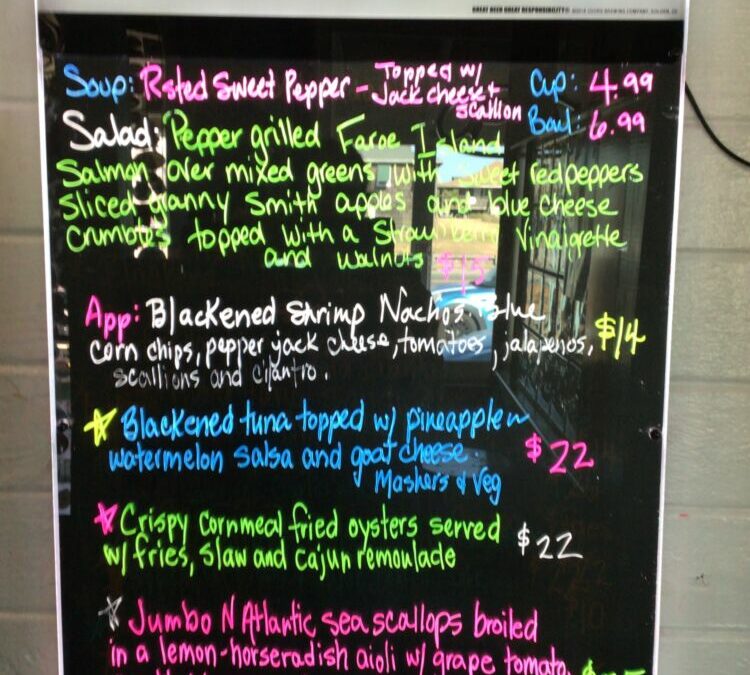 GREAT BEER GREAT RESPONSIBILITY®
Soup: Rsted Sweet Pepper - Topped w/ Jack cheese + scallion Cup: 4.99
Bowl: 6.99
Salad: Pepper grilled Faroe Island
Salmon over mixed greens with sweet red peppers
sliced granny Smith apples and blue cheese
crumbles topped with a Strawberry Vinaigrette
and walnuts $15
App: Blackened Shrimp Nachos. Blue
corn chips, pepper jack cheese, tomatoes, jalapenos, $14
scallions and cilantro.
Blackened tuna topped w/ pineapple
watermelon salsa and goat cheese $22
Mashers & Veg
Crispy Cornmeal fried oysters served
w/ fries, slaw and Cajun remoulade $22
Jumbo N Atlantic sea scallops broiled
in a lemon-horseradish aioli w/ grape tomato,